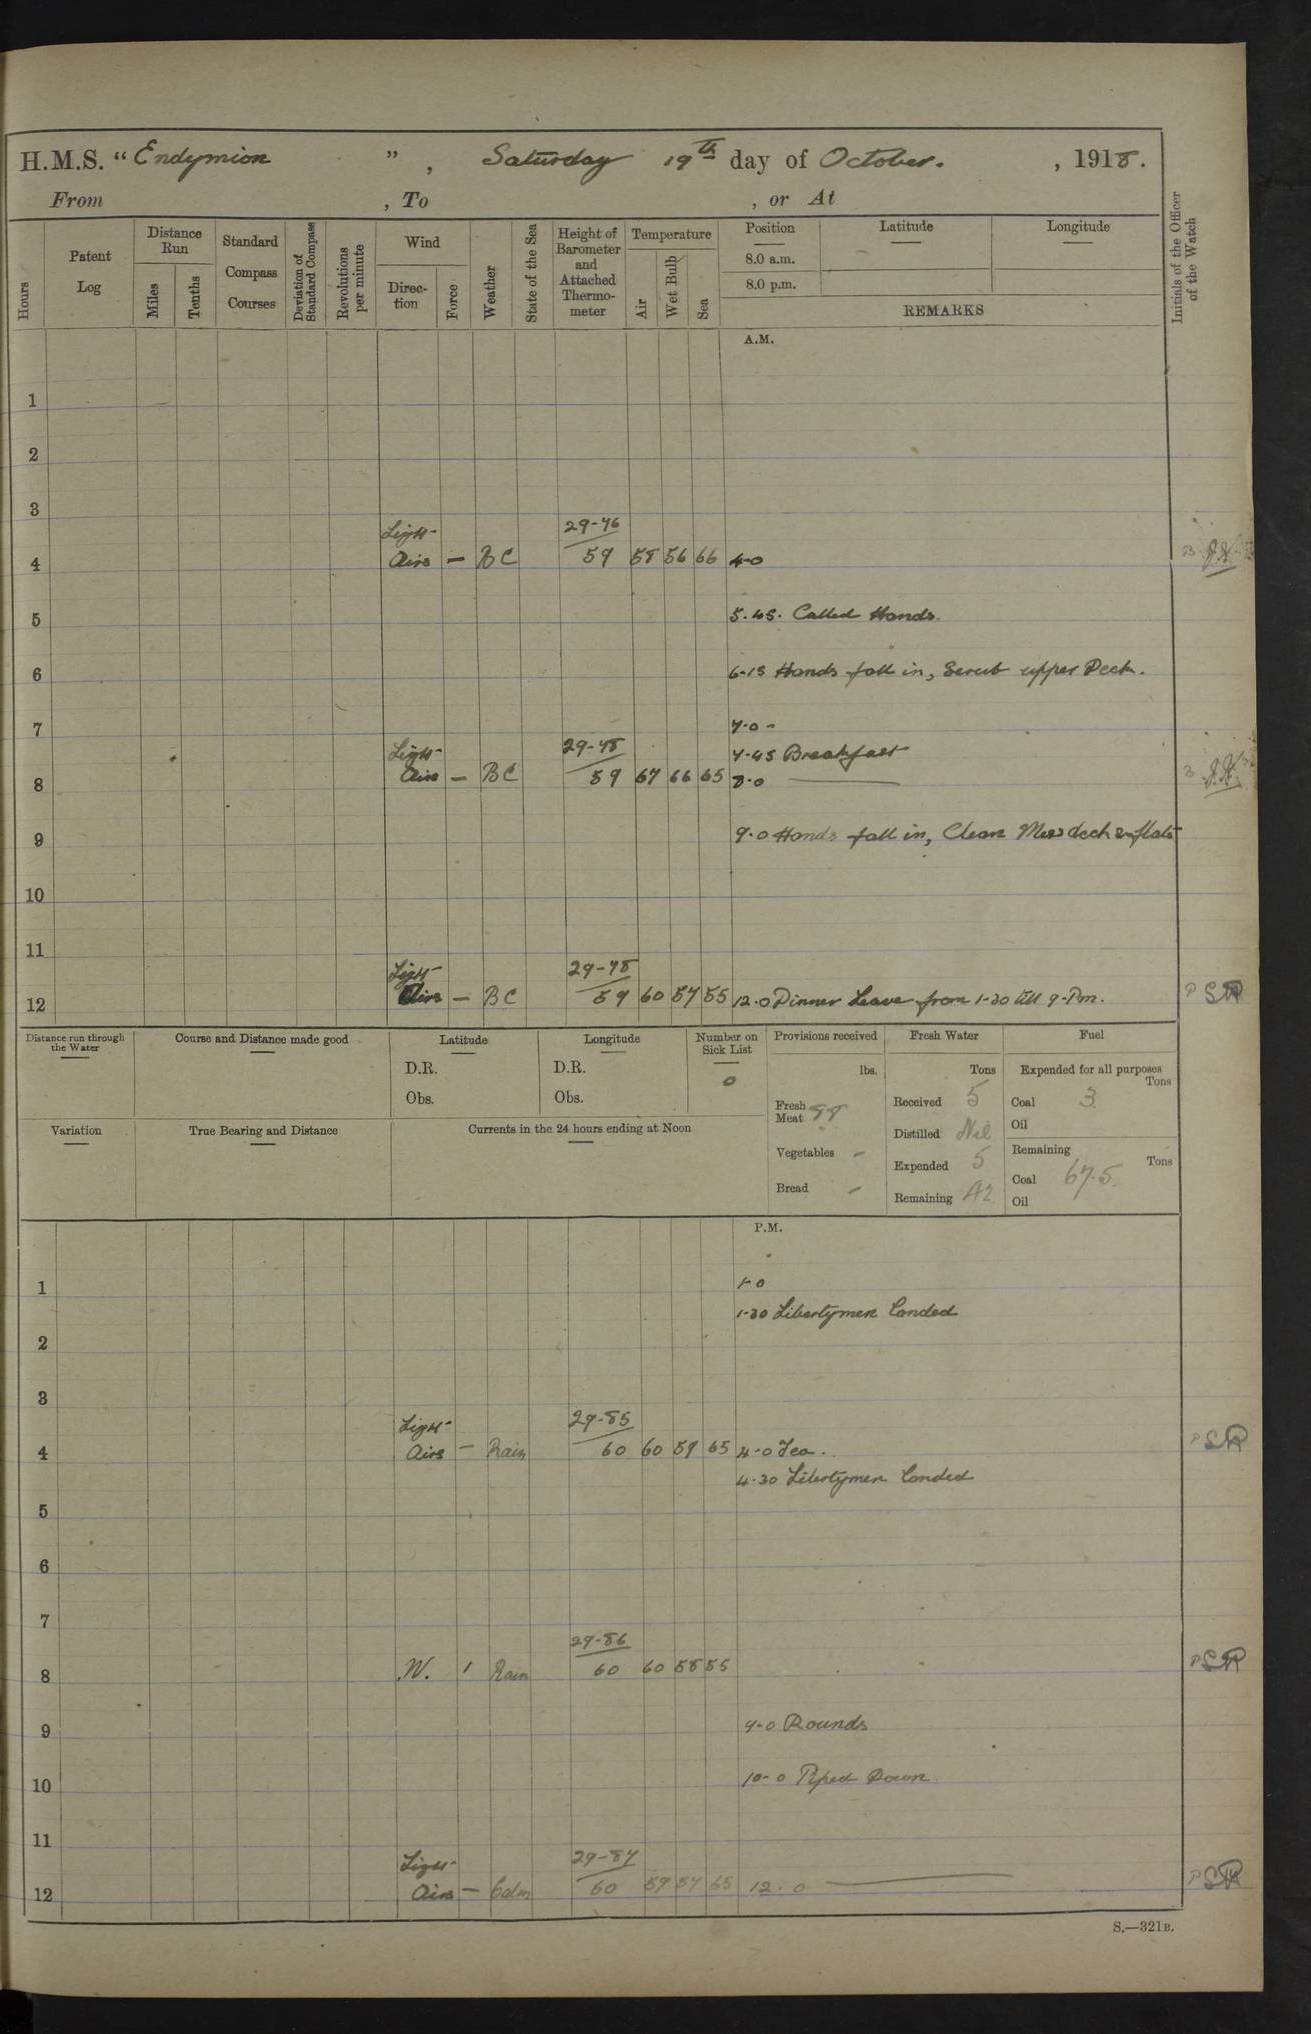 H.M.S. "Endymion ", Saturday 19th day of October. , 1918.
From , To , or At
Hours
Patent Log
Distance Run
Miles
Tenths
Standard Compass Courses
Deviation of Standard Compass
Revolutions per minute
Wind
Direction
Force
Weather
State of the Sea
Height of Barometer and Attached Thermometer
Temperature
Air
Wet Bulb
Sea
Position
8.0 a.m.
8.0 p.m.
Latitude
Longitude
REMARKS
Initials of the Officer of the Watch
A.M.
1
2
3
Light 29-76
4 Airs — BC 59 58 56 66 4-0
5 5.45. Called Hands.
6 6-15 Hands fall in, Scrub upper Deck.
7 7.0 -
Light 29-78 7.45 Breakfast
8 Airs — BC 59 67 66 65 8.0
9 9.0 Hands fall in, Clean Mess deck & flats
10
11
Light 29-78
12 Airs — BC 59 60 57 55 12.0 Dinner Leave from 1-30 till 9-Pm.
Distance run through the Water
Course and Distance made good
Latitude
D.R.
Obs.
Longitude
D.R.
Obs.
Number on Sick List
0
Provisions received
lbs.
Fresh Meat 98
Vegetables -
Bread -
Fresh Water
Tons
Received 5
Distilled Nil
Expended 5
Remaining 42
Fuel
Expended for all purposes
Tons
Coal 3
Oil
Remaining
Tons
Coal 67.5
Oil
Variation
True Bearing and Distance
Currents in the 24 hours ending at Noon
P.M.
1 1-0
1-30 Libertymen Landed
2
3
Light 29-85
4 Airs — Rain 60 60 59 65 4-0 Tea.
4-30 Libertymen Landed
5
6
7
29-86
8 W. 1 Rain 60 60 58 55
9 9-0 Rounds
10 10-0 Piped Down
11
Light 29-87
12 Airs — Calm 60 59 57 65 12.0
S.—321B.